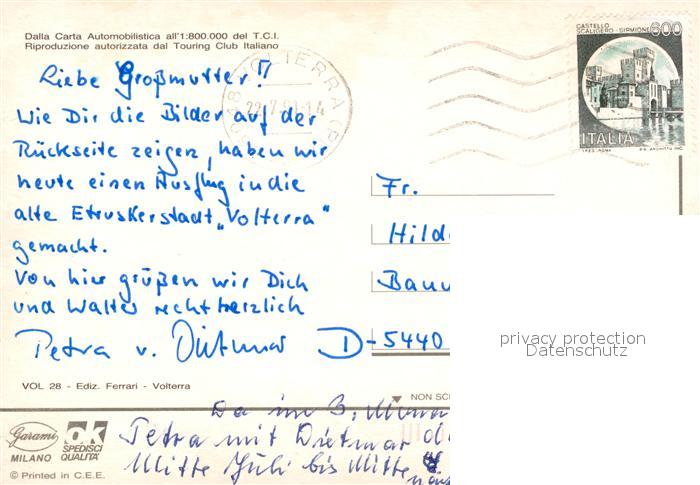 Dalla Carta Automobilistica all'1:800.000 del T.C.I.
Riproduzione autorizzata dal Touring Club Italiano
CASTELLO
SCALIGERO - SIRMIONE
600
ITALIA
VOLTERRA
Liebe Großmutter!!
Wie Dir die Bilder auf der
Rückseite zeigen, haben wir
heute einen Ausflug in die
alte Etruskerstadt „Volterra"
gemacht.
Von hier grüßen wir Dich
und Walter recht herzlich
Petra u. Dietmar
Fr.
Hild
Bau
D-5440
privacy protection
Datenschutz
VOL 28 - Ediz. Ferrari - Volterra
NON SC
Da im 3.
Petra mit Dietmar
Mitte Juli bis Mitte
Garami
MILANO
OK
SPEDISCI
QUALITÀ
© Printed in C.E.E.